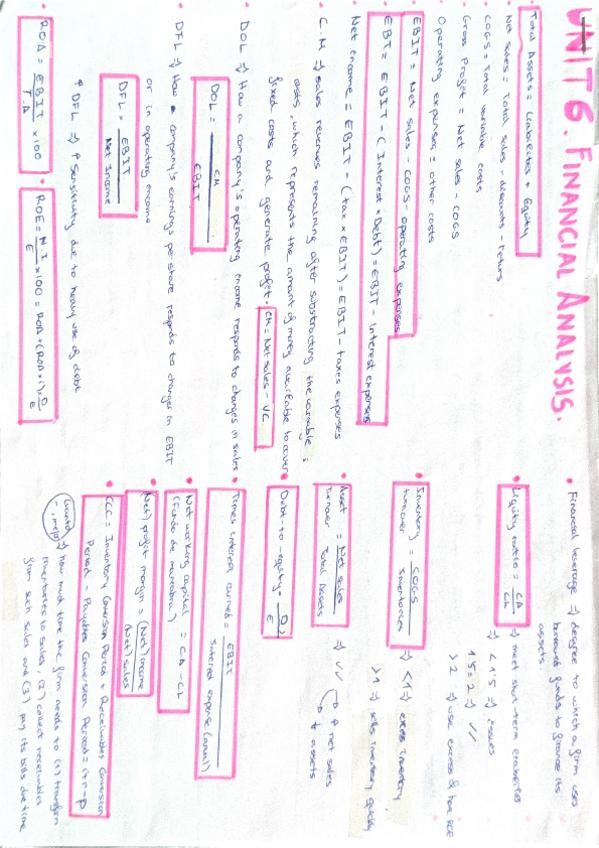 UNIT 6. FINANCIAL ANALYSIS.
• Total Assets = Liabilities + Equity
• Net sales = Total sales - discounts - returns
• COGS = total variable costs
• Gross Profit = Net sales - COGS
• Operating expenses = other costs
• EBIT = Net sales - COGS - operating expenses
• EBT = EBIT - (Interest * Debt) = EBIT - Interest expenses
• Net income = EBIT - (tax x EBIT) = EBIT - taxes expenses
• C.M => sales revenues remaining after substracting the variable
costs, which represents the amount of money available to cover
fixed costs and generate profit. CM = Net sales - VC
• DOL => How a company's operating income responds to changes in sales
DOL = CM / EBIT
• DFL => How a company's earnings per share responds to changes in EBIT
or in operating income
DFL = EBIT / Net Income
↑ DFL => ↑ Sensitivity due to heavy use of debt
• ROA = EBIT / T.A x 100
• ROE = N.I / E x 100 = ROA + (ROA x i) x D / E
• Financial leverage => degree to which a firm uses
borrowed funds to finance its
assets
• Liquidity ratio = CA / CL => meet short-term liabilities
=> < 1'5 => issues
1'5 = 2 => ✓✓
> 2 => use excess of the
• Inventory turnover = COGS / Inventories => < 1 => excess inventory
> 1 => sells inventory quickly
• Asset turnover = Net sales / Total Assets => ✓✓ ↑ net sales
↓ assets
• Debt-to-equity = D / E
• Times interest earned = EBIT / interest expense (annual)
• Net working capital = CA - CL
(Fondo de maniobra)
• (Net) profit margin = (Net) income / (Net) sales
• CCC = Inventory Conversion Period + Receivables Conversion
Period - Payables Conversion Period = i + r - p
=> how much time the firm needs to (1) transform
inventories to sales, (2) collect receivables
from such sales and (3) pay its bills due time